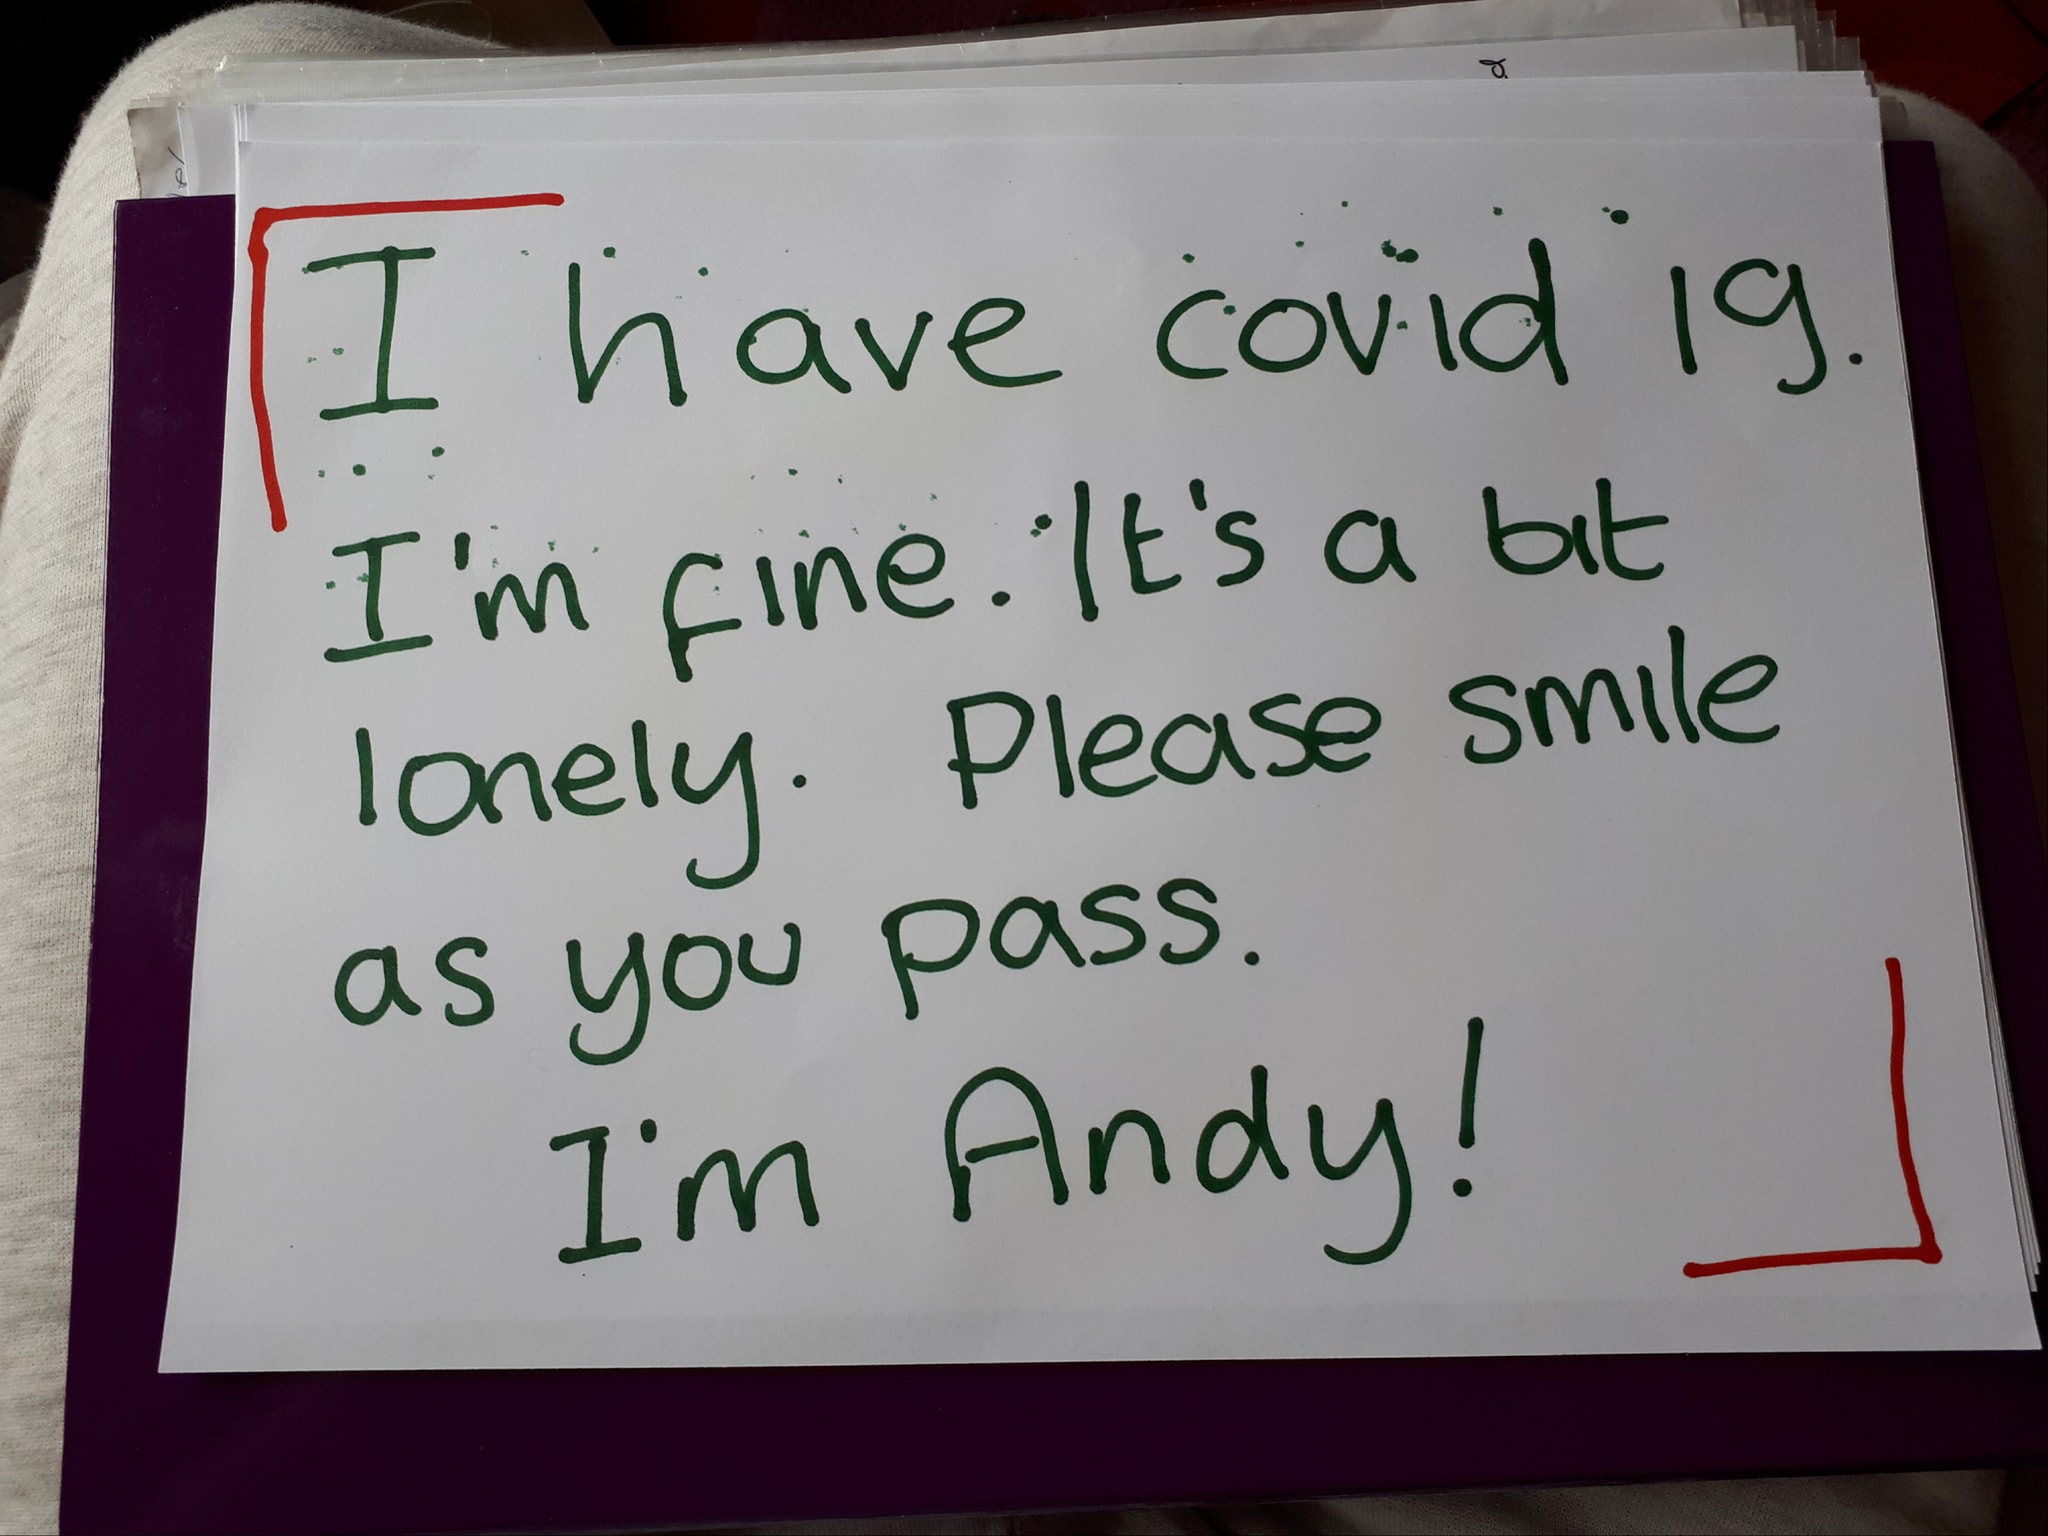 I have covid 19.
I'm fine. It's a bit
lonely. Please smile
as you pass.
I'm Andy!